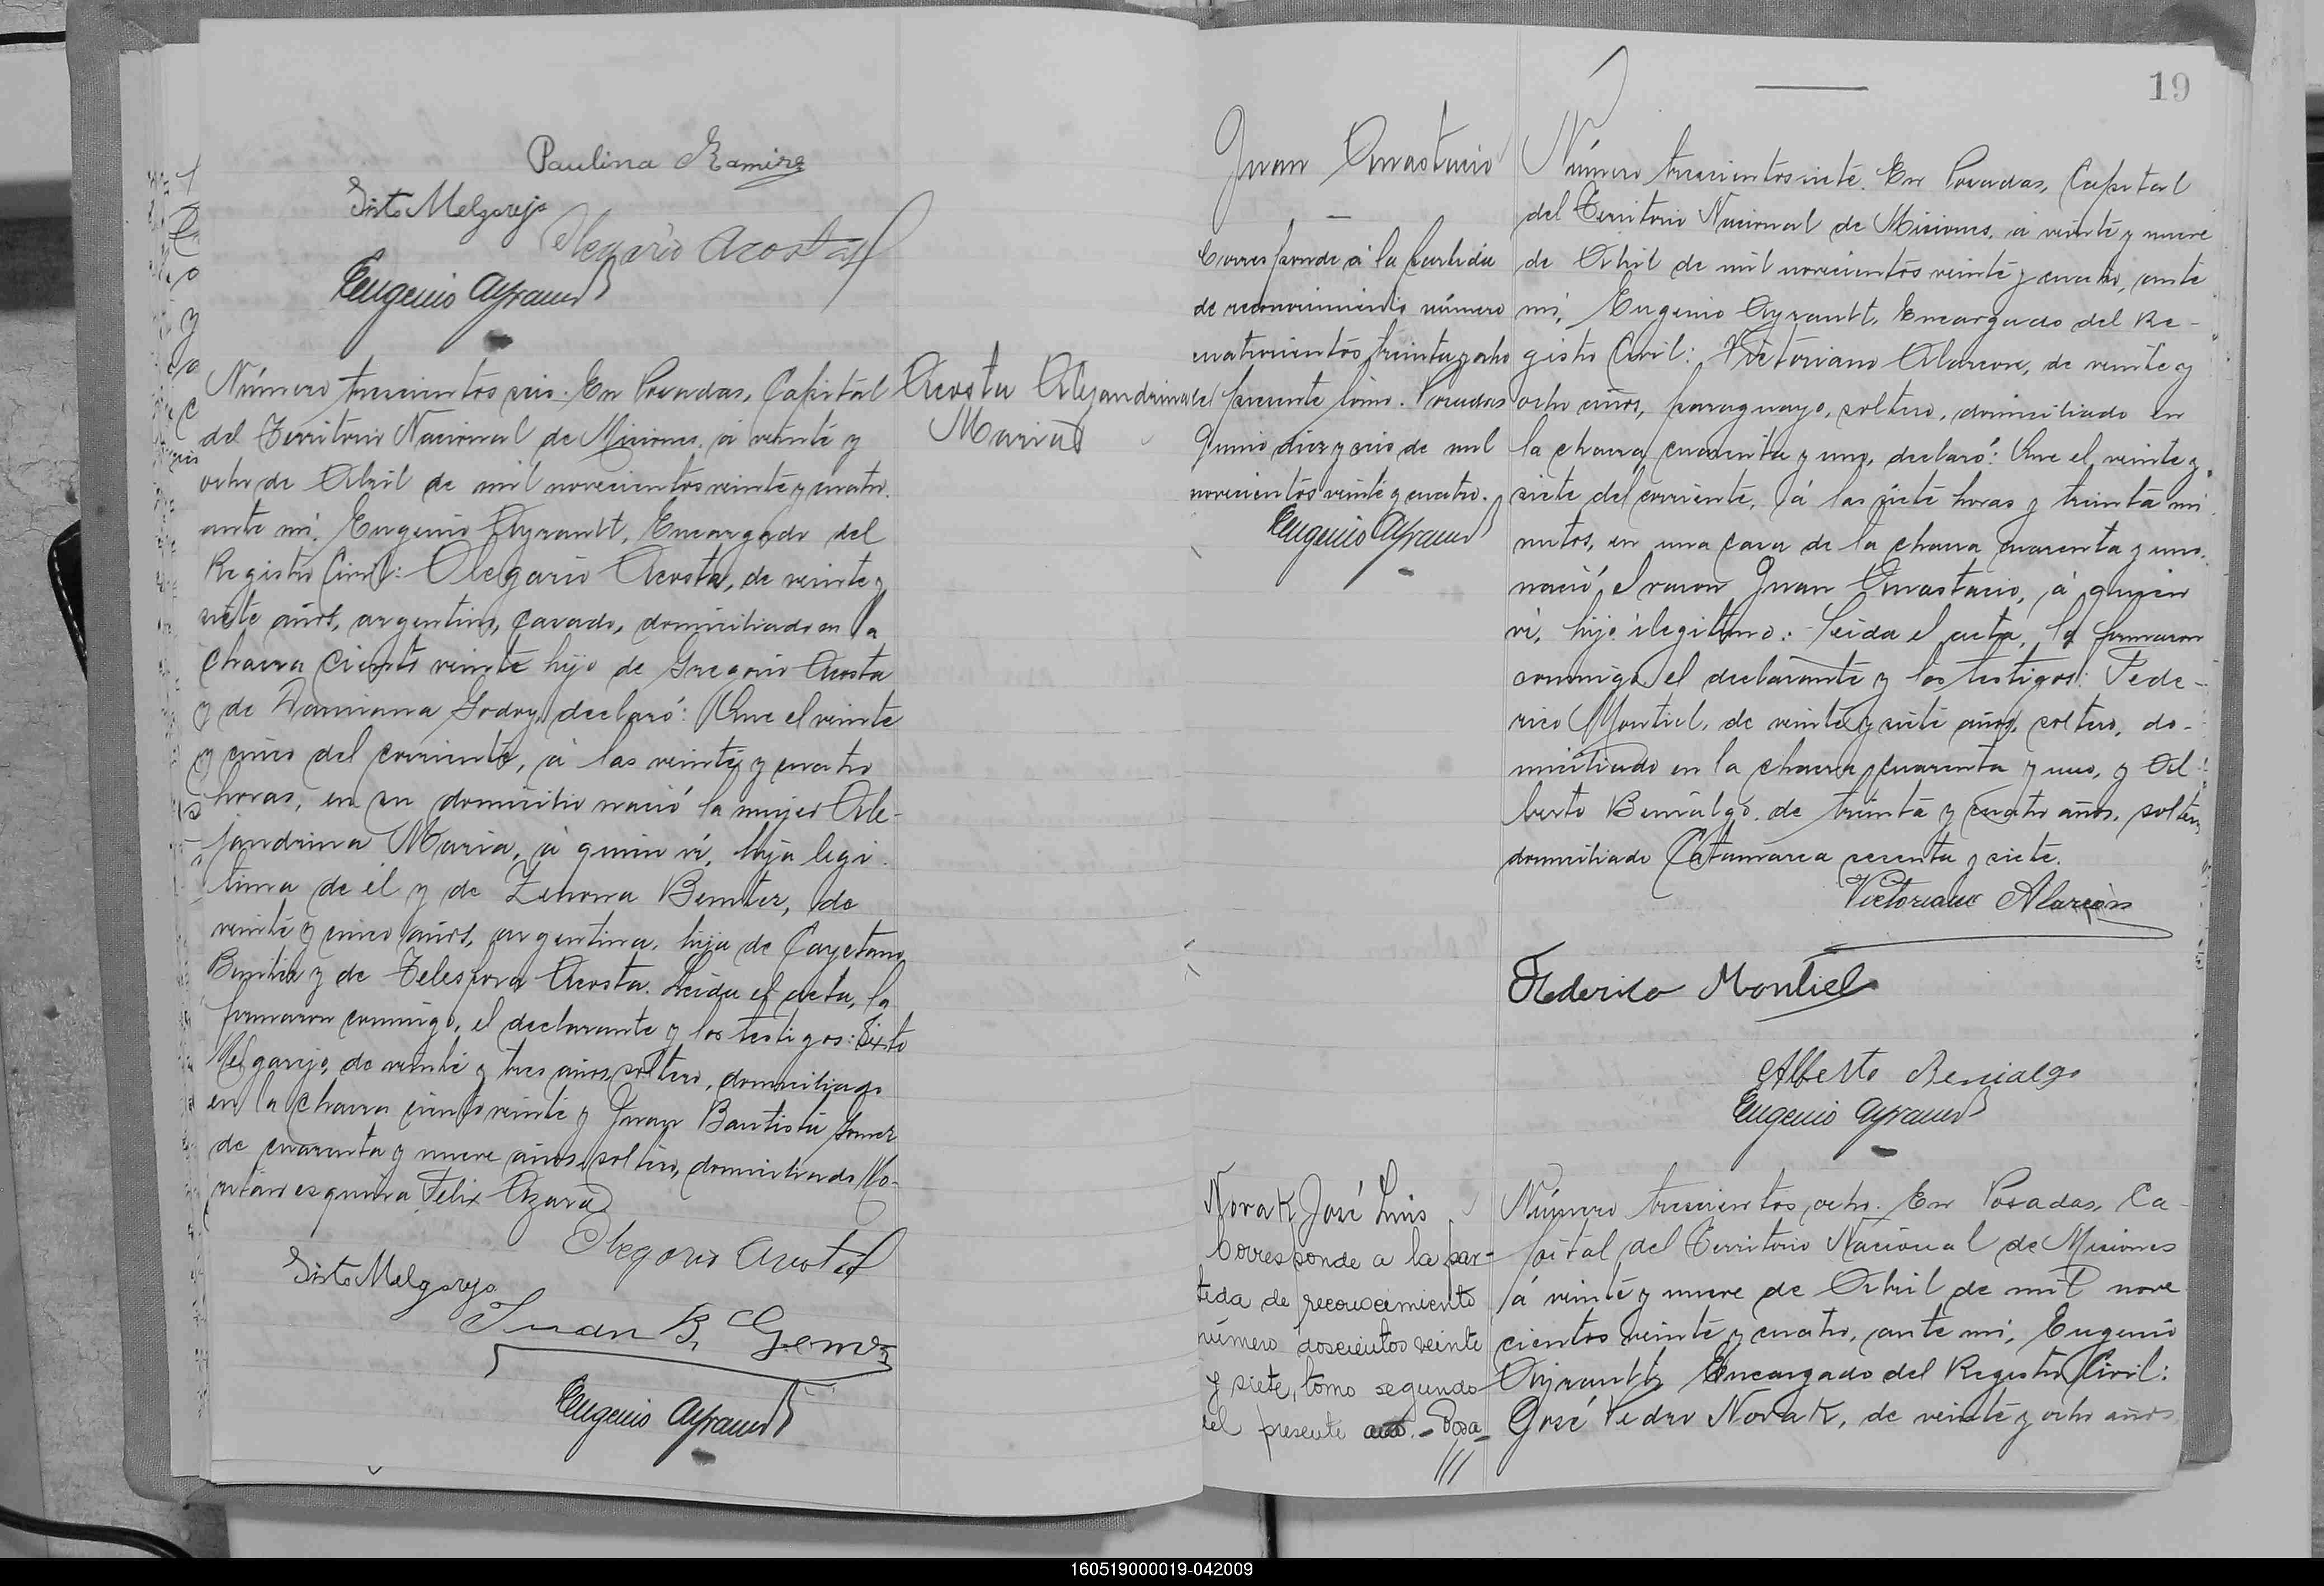 Paulina Ramirez
Sisto Melgarejo
Olegario Acosta
Eugenio Ayrault
Número trescientos seis. En Posadas, Capital
del Territorio Nacional de Misiones, á veinte y
ocho de Abril de mil novecientos veinte y cuatro.
ante mi, Eugenio Ayrault, Encargado del
Registro Civil: Olegario Acosta, de veinte y
siete años, argentino, casado, domiciliado en la
chacra ciento veinte hijo de Gregorio Acosta
y de Damiana Godoy, declaró: Que el veinte
y cinco del corriente, á las veinte y cuatro
horas, en su domicilio nació la mujer Ale-
jandrina Maria, á quien ví, hija legi-
tima de él y de Zenona Benitez, de
veinte y cinco años, argentina, hija de Cayetano
Benitez y de Telesfora Acosta. Leida el acta, la
firmaron conmigo, el declarante y los testigos: Sixto
Melgarejo, de veinte y tres años, soltero, domiciliado
en la chacra ciento veinte y Juan Bautista Gomez
de cuarenta y nueve años, soltero, domiciliado
esquina Felix Azara
Olegario Acosta
Sisto Melgarejo
Juan B. Gomez
Eugenio Ayrault
Acosta Alejandrina
Maria
19
Juan Anastacio
Corresponde á la partida
de reconocimiento número
cuatrocientos treinta y ocho
del presente tomo. Posadas
Junio diez y seis de mil
novecientos veinte y cuatro.
Eugenio Ayrault
Número trescientos siete. En Posadas, Capital
del Territorio Nacional de Misiones, á veinte y nueve
de Abril de mil novecientos veinte y cuatro, ante
mi, Eugenio Ayrault, Encargado del Re-
gistro Civil: Victoriano Alarcon, de veinte y
ocho años, paraguayo, soltero, domiciliado en
la chacra cuarenta y uno, declaró: Que el veinte y
siete del corriente, á las siete horas y treinta mi-
nutos, en una casa de la chacra cuarenta y uno,
nació el varon Juan Anastacio, á quien
ví, hijo ilegitimo. Leida el acta, la firmaron
conmigo el declarante y los testigos: Fede-
rico Montiel, de veinte y siete años, soltero, do-
miciliado en la chacra cuarenta y uno, y Al-
berto Benialgo, de treinta y cuatro años, soltero
domiciliado Catamarca sesenta y siete.
Victoriano Alarcón
Federico Montiel
Alberto Benialgo
Eugenio Ayrault
Novak José Luis
Corresponde a la par-
tida de reconocimiento
número doscientos veinte
y siete, tomo segundo
del presente - Posa-
Número trescientos ocho. En Posadas, Ca-
pital del Territorio Nacional de Misiones
á veinte y nueve de Abril de mil nove
cientos veinte y cuatro, ante mi, Eugenio
Ayrault, Encargado del Registro Civil:
José Pedro Novak, de veinte y ocho años
160519000019-042009